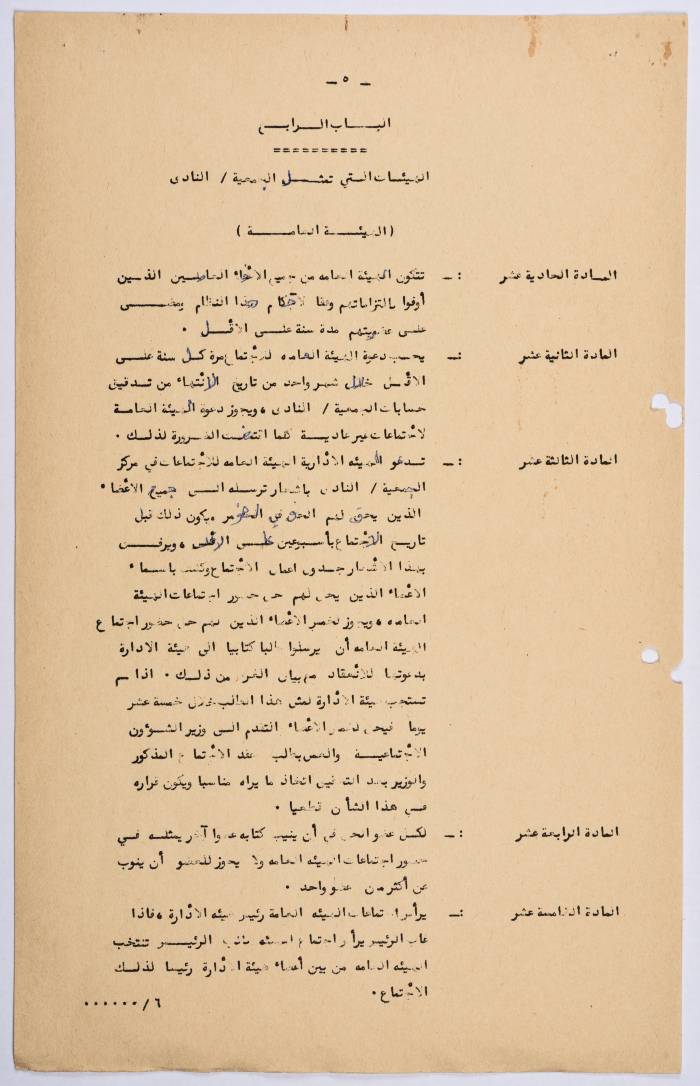 - ٥ -
الباب الرابع
==========
الهيئات التي تمثل الجمعية / النادى
( الهيئة العامة )
المادة الحادية عشر :- تتكون الهيئة العامه من جميع الاعضاء العاملين الذين
أوفوا بالتزاماتهم وفقا لاحكام هذا النظام ومضى
على عضويتهم مدة سنة على الاقل .
المادة الثانية عشر :- يجب دعوة الهيئة العامه للاجتماع مرة كل سنة على
الاقل خلال شهر واحد من تاريخ الانتهاء من تدقيق
حسابات الجمعية / النادى ، ويجوز دعوة الهيئة العامة
لاجتماعات غير عادية كلما اقتضت الضرورة لذلك .
المادة الثالثة عشر :- تدعو الهيئه الادارية الهيئة العامه للاجتماعات في مركز
الجمعية / النادى باشعار ترسله الى جميع الاعضاء
الذين يحق لهم الحق في الحضور ويكون ذلك قبل
تاريخ الاجتماع بأسبوعين على الاقل ، ويرفق
بهذا الاشعار جدول اعمال الاجتماع وكشف باسماء
الاعضاء الذين يحق لهم حق حضور اجتماعات الهيئة
العامه ، ويجوز لخمس الاعضاء الذين لهم حق حضور اجتماع
الهيئة العامه أن يرسلوا طلبا كتابيا الى هيئة الادارة
بدعوتها للانعقاد مع بيان الغرض من ذلك . اذا لم
تستجب هيئة الادارة لمثل هذا الطلب خلال خمسة عشر
يوما فيحق لخمس الاعضاء التقدم الى وزير الشؤون
الاجتماعية والعمل بطلب عقد الاجتماع المذكور
وللوزير بعد التدقيق اتخاذ ما يراه مناسبا ويكون قراره
في هذا الشأن قطعيا .
المادة الرابعة عشر :- لكل عضو الحق في أن ينيب كتابه عضوا آخر يمثله في
حضور اجتماعات الهيئه العامه ولا يجوز للعضو أن ينوب
عن أكثر من عضو واحد .
المادة الخامسة عشر :- يرأس اجتماعات الهيئه العامة رئيس هيئه الادارة ، فاذا
غاب الرئيس يرأس اجتماع الهيئه نائب الرئيس تنتخب
الهيئه العامه من بين أعضاء هيئة الادارة رئيسا لذلك
الاجتماع .
٦/ ......